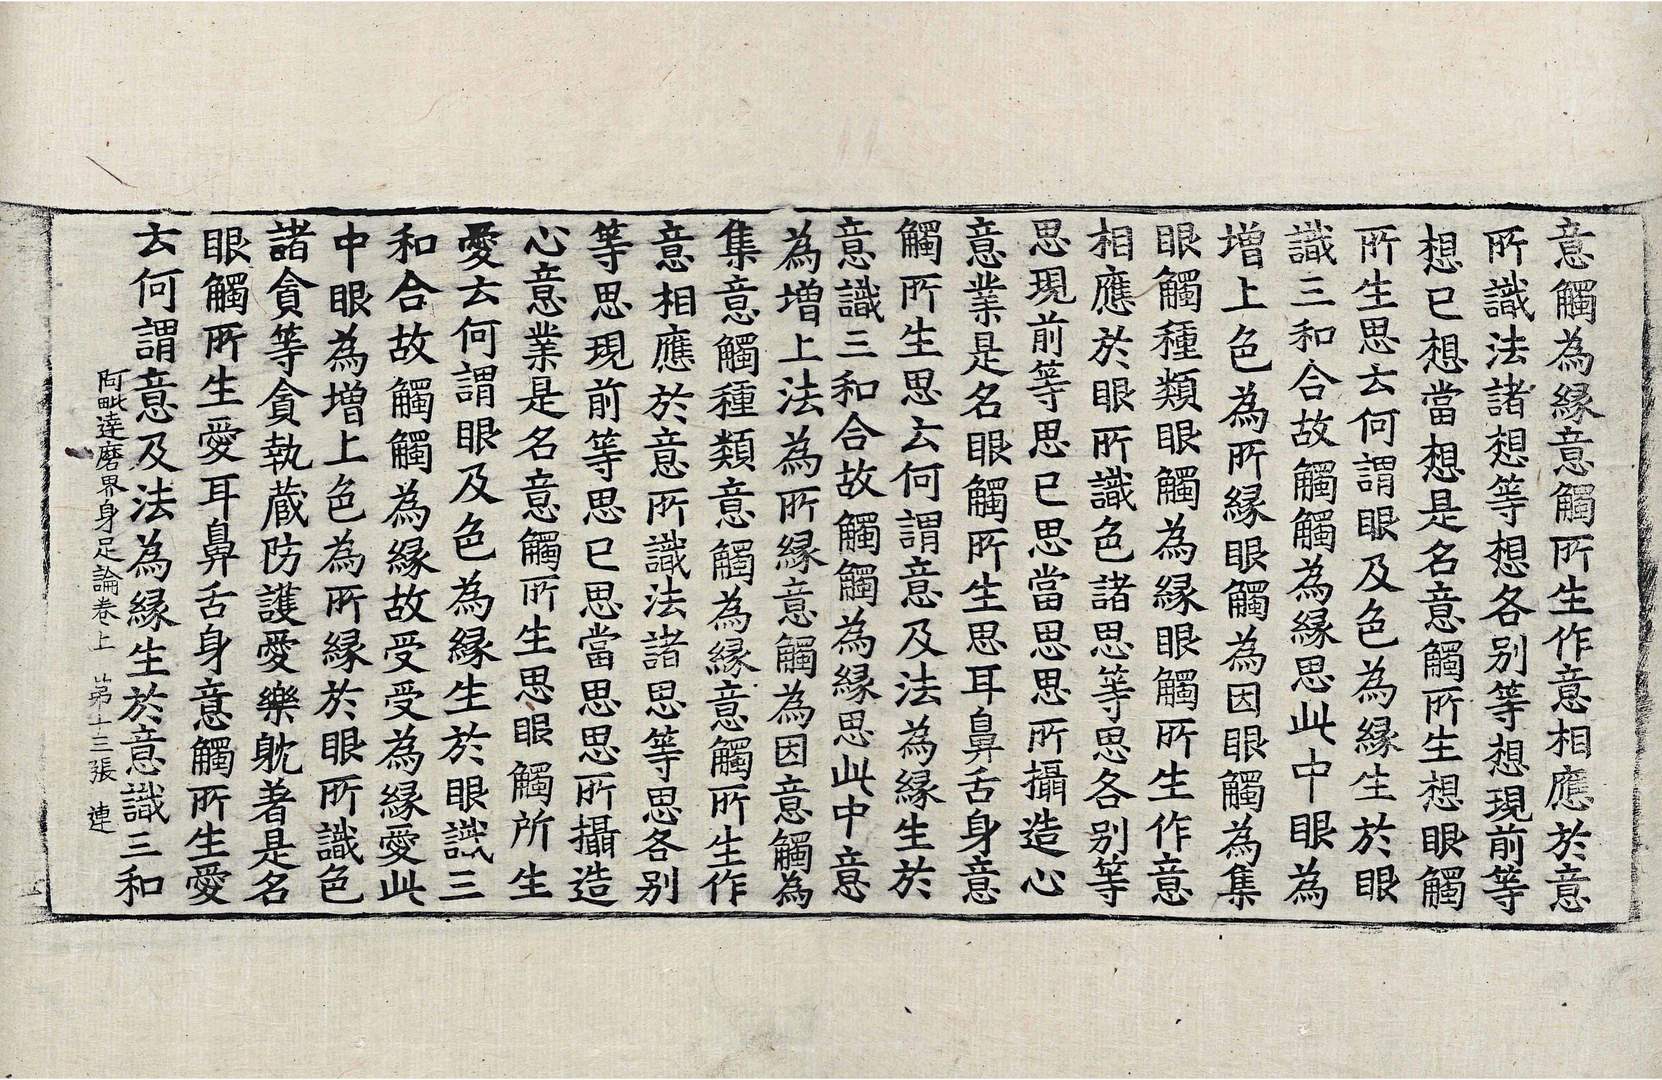 意觸為縁意觸所生作意相應於意
所識法諸想等想各别等想現前等
想已想當想是名意觸所生想眼觸
所生思云何謂眼及色為縁生於眼
識三和合故觸觸為縁思此中眼為
增上色為所縁眼觸為因眼觸為集
眼觸種類眼觸為縁眼觸所生作意
相應於眼所識色諸思等思各别等
思現前等思已思當思思所攝造心
意業是名眼觸所生思耳鼻舌身意
觸所生思云何謂意及法為縁生於
意識三和合故觸觸為縁思此中意
為增上法為所縁意觸為因意觸為
集意觸種類意觸為縁意觸所生作
意相應於意所識法諸思等思各别
等思現前等思已思當思思所攝造
心意業是名意觸所生思眼觸所生
愛云何謂眼及色為縁生於眼識三
和合故觸觸為縁故受受為縁愛此
中眼為增上色為所縁於眼所識色
諸貪等貪執蔵防護愛樂躭著是名
眼觸所生愛耳鼻舌身意觸所生愛
云何謂意及法為縁生於意識三和
阿毗達磨界身足論卷上 苐十三張 連